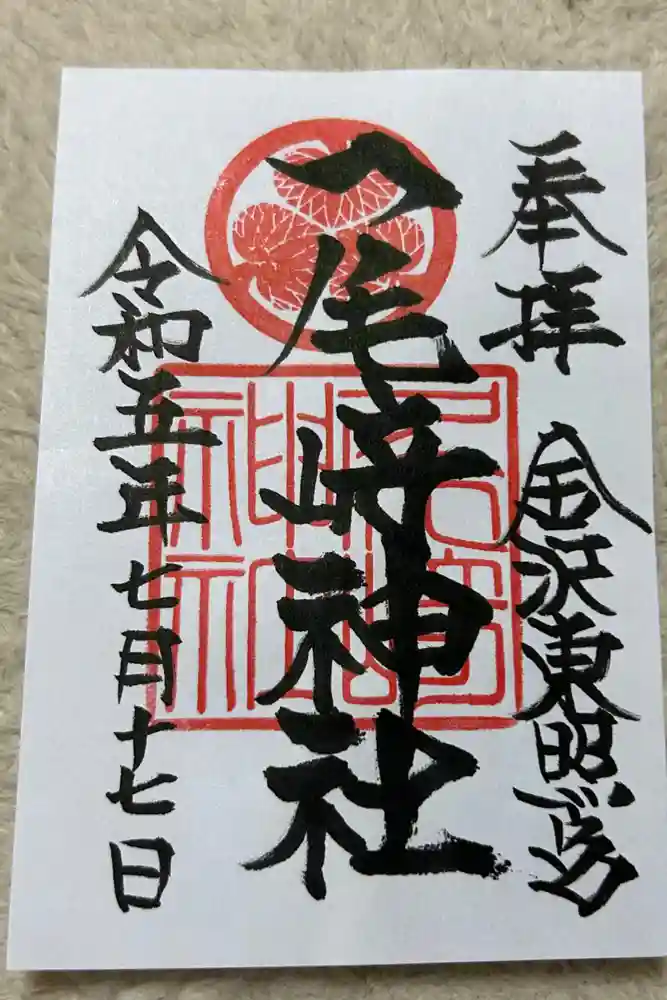 奉拝
金沢東照宮
尾崎神社
令和五年七月十七日
尾崎神社